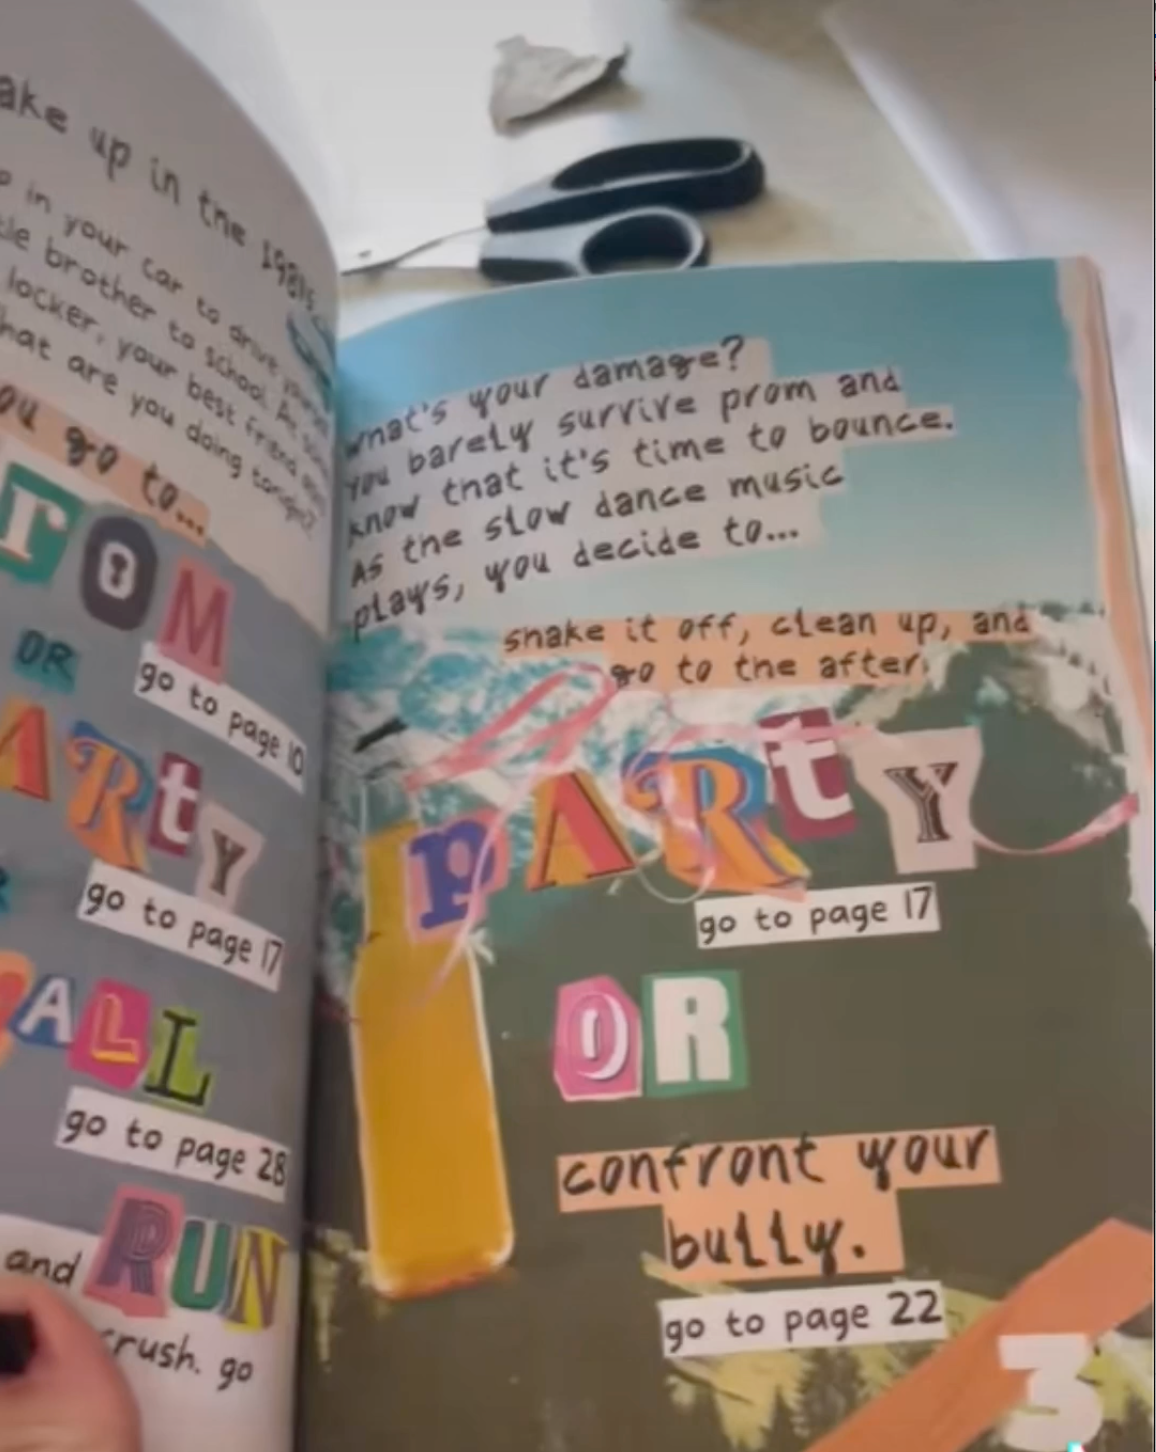 ake up in the 1981s.
in your car to drive
tle brother to school. At
locker, your best friend
hat are you doing tonight?
ou go to...
rOM
OR
go to page 10
ARtY
go to page 17
ALL
go to page 28
and RUN
crush. go
What's your damage?
You barely survive prom and
know that it's time to bounce.
As the slow dance music
plays, you decide to...
shake it off, clean up, and
go to the after
PARtY
go to page 17
OR
confront your
bully.
go to page 22
3